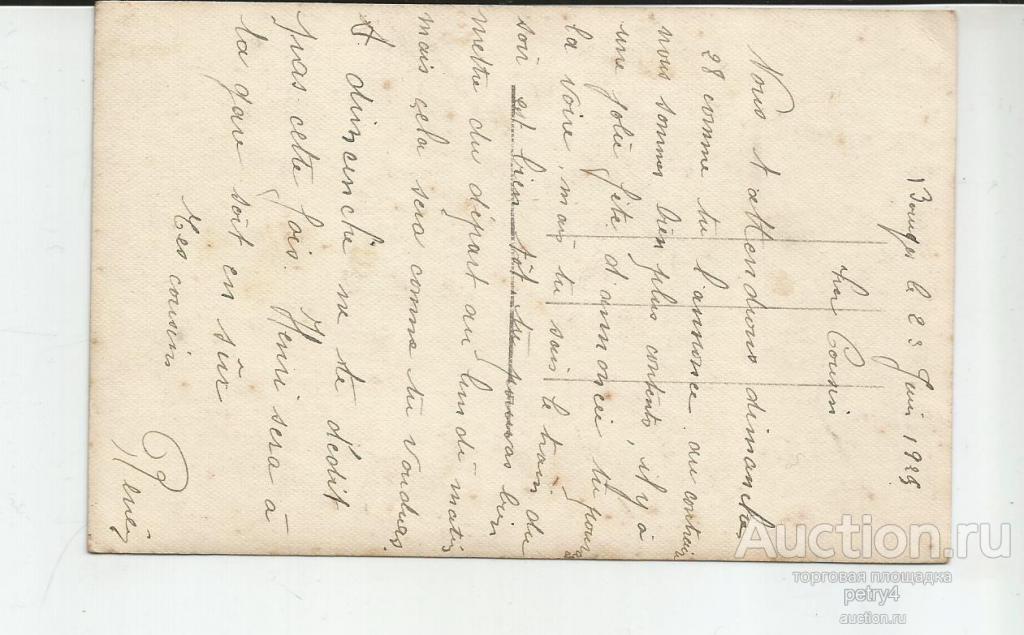 le 23 Juin 1925
Cher Cousin
Nous t attendrons dimanche
28 comme tu l'annonce au contraire
nous sommes bien plus contents, il y à
une jolie fête d'annoncée tu pourras
la voire, mais tu sais le train du
soir est bien tôt tu pourras bien
mettre du départ au lundi matin
mais çela sera comme tu voudras.
A dimenche ne te dédit
pas cette fois. Henri sera à
la gare soit en sûr
Tes cousins
Auction.ru
торговая площадка
petry4
auction.ru